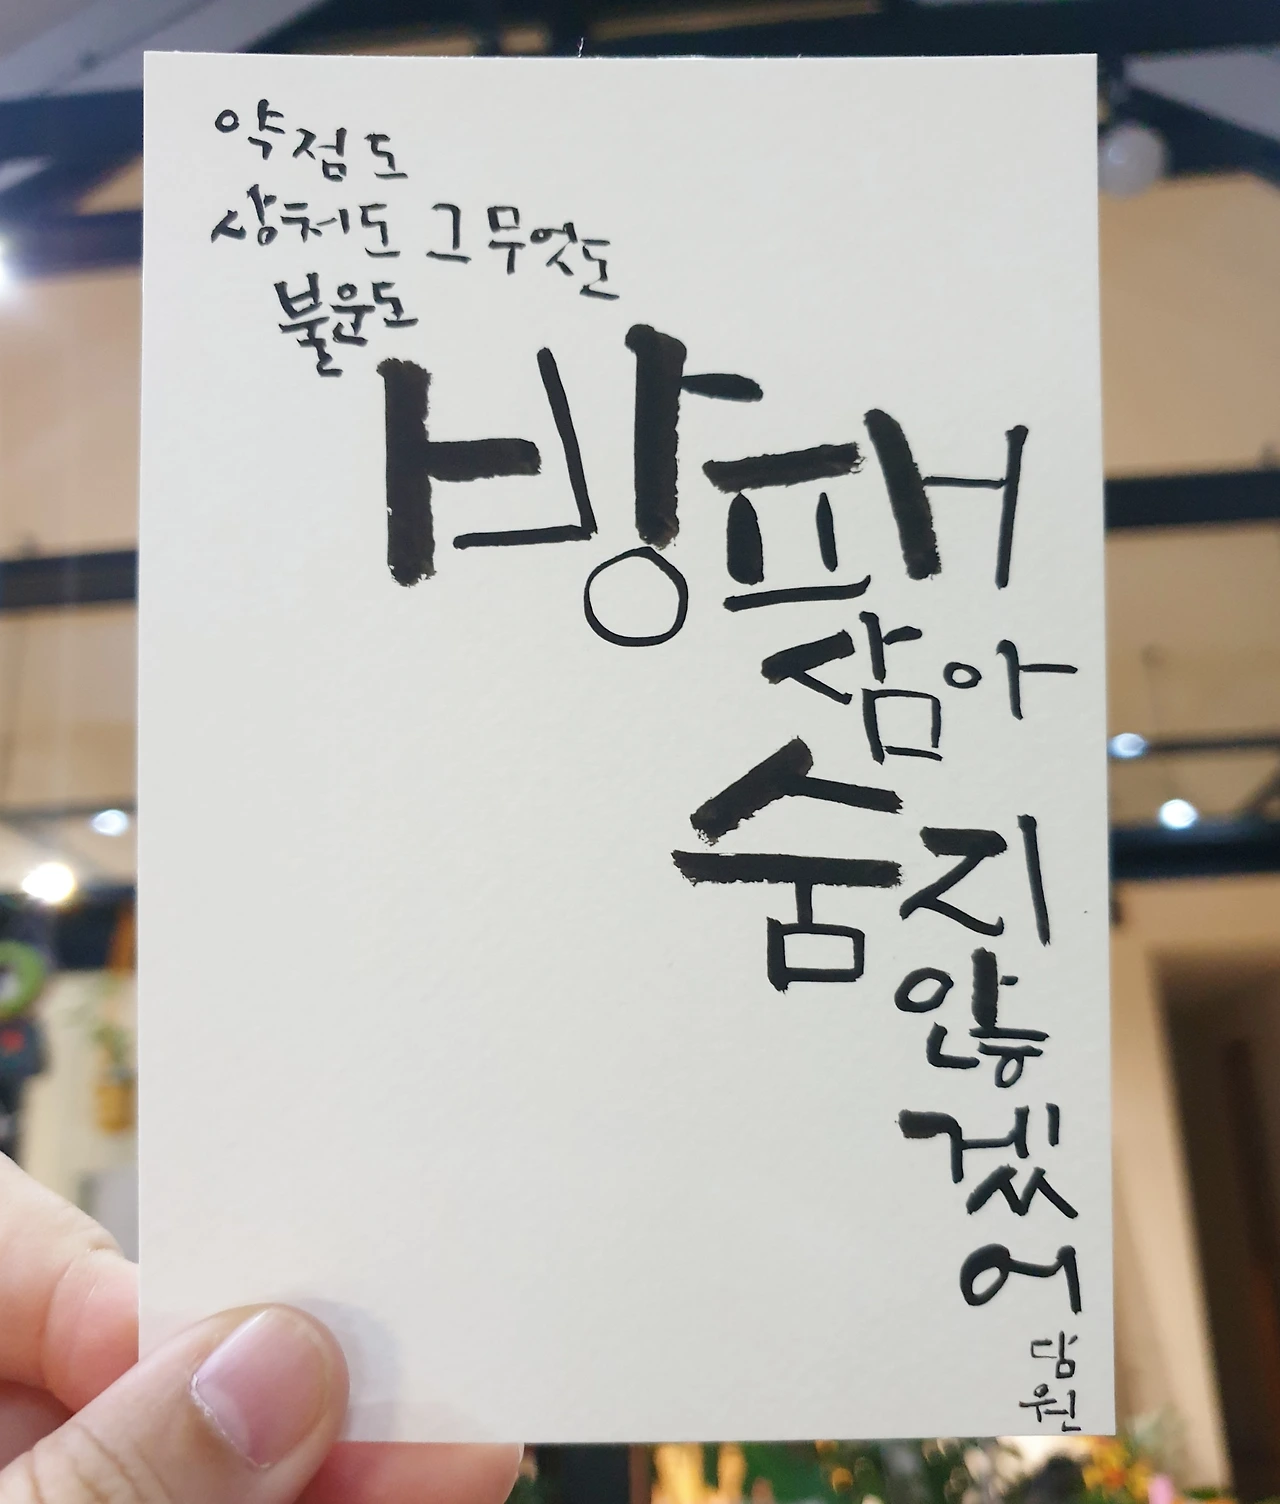 약점도
상처도 그무엇도
불운도
방패
삼아
숨지
않
겠
어
담
원